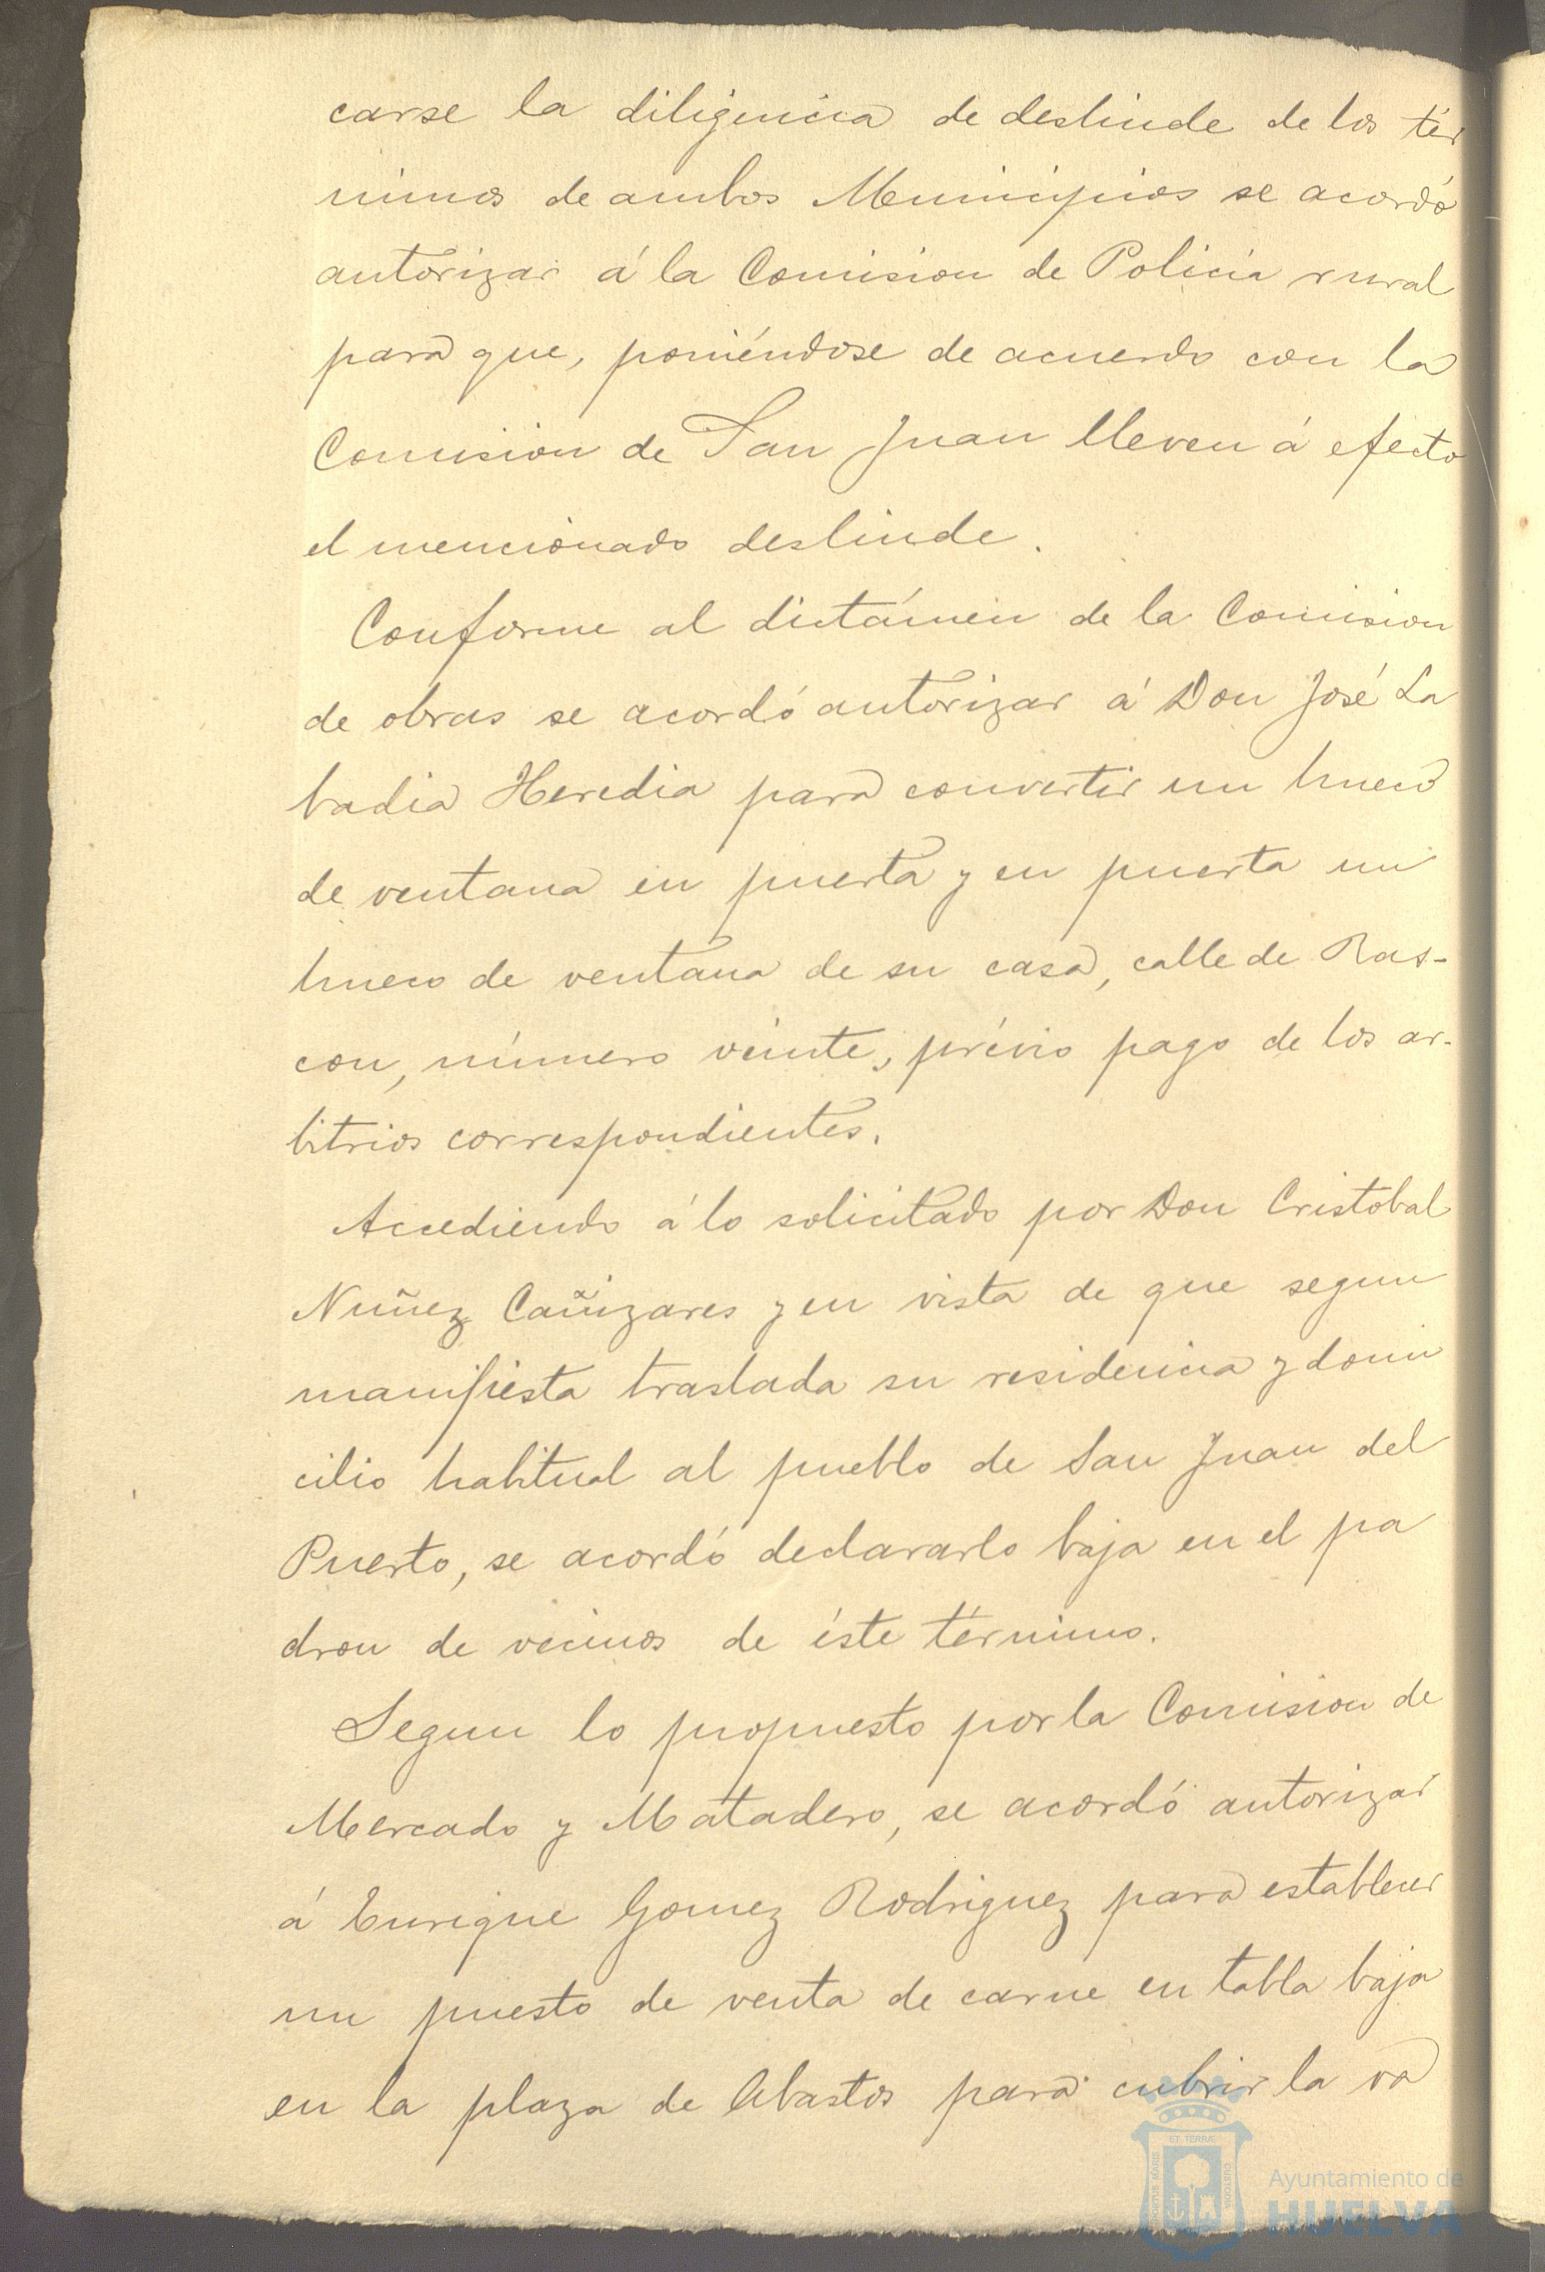 carse la diligencia de deslinde de los tér
minos de ambos Municipios se acordó
autorizar á la Comision de Policia rural
para que, poniéndose de acuerdo con la
Comision de San Juan lleven á efecto
el mencionado deslinde.
Conforme al dictámen de la Comision
de obras se acordó autorizar á Don José La
badia Heredia para convertir un hueco
de ventana en puerta y en puerta un
hueco de ventana de su casa, calle de Ras-
con, número veinte, prévio pago de los ar-
bitrios correspondientes.
Accediendo á lo solicitado por Don Cristobal
Nuñez Cañizares y en vista de que segun
manifiesta traslada su residencia y domi
cilio habitual al pueblo de San Juan del
Puerto, se acordó declararlo baja en el pa
dron de vecinos de éste término.
Segun lo propuesto por la Comision de
Mercado y Matadero, se acordó autorizar
á Enrique Gomez Rodriguez para establecer
un puesto de venta de carne en tabla baja
en la plaza de Abastos para cubrir la va
Ayuntamiento de
HUELVA